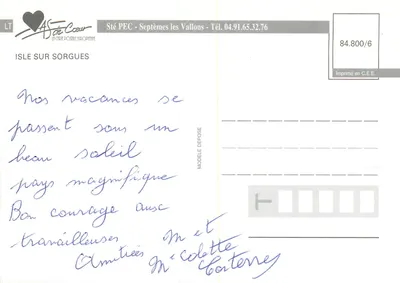 LT
AS de Cœur
Sté PEC - Septèmes les Vallons - Tél. 04.91.65.32.76
84.800/6
Imprimé en C.E.E.
ISLE SUR SORGUES
MODELE DEPOSE
Nos vacances se
passent sous un
beau soleil
pays magnifique
Bon courage aux
travailleuses
Amitiées M et
Me Colette